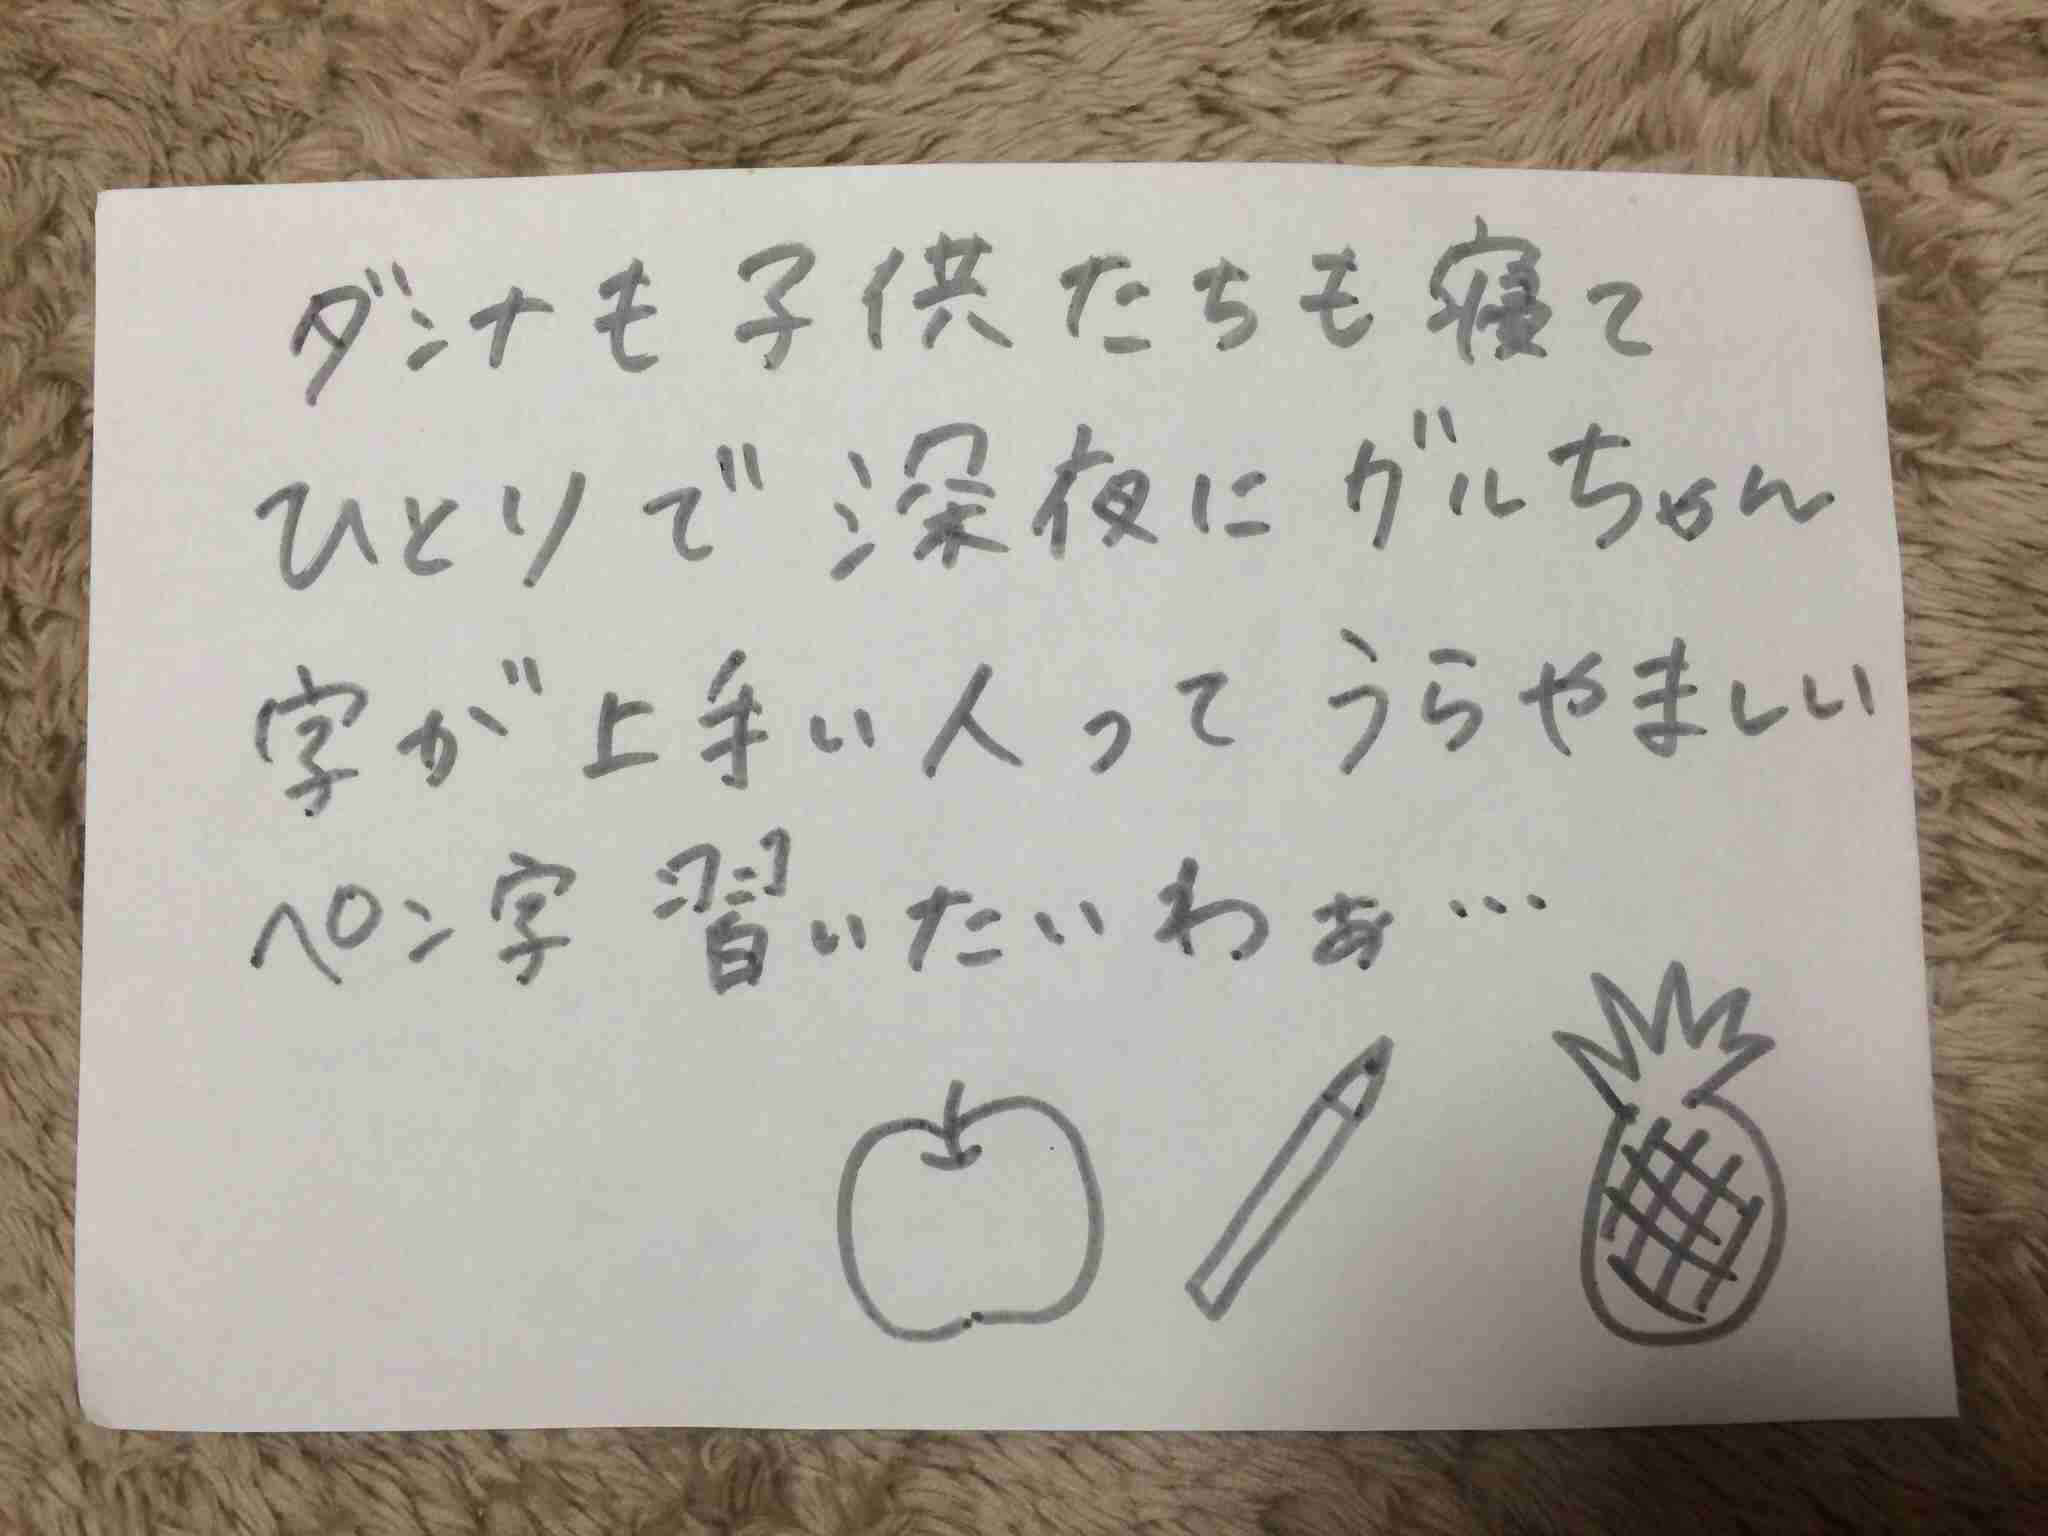 ダンナも子供たちも寝て
ひとりで深夜にグルちゃん
字が上手い人ってうらやましい
ペン字習いたいわぁ…